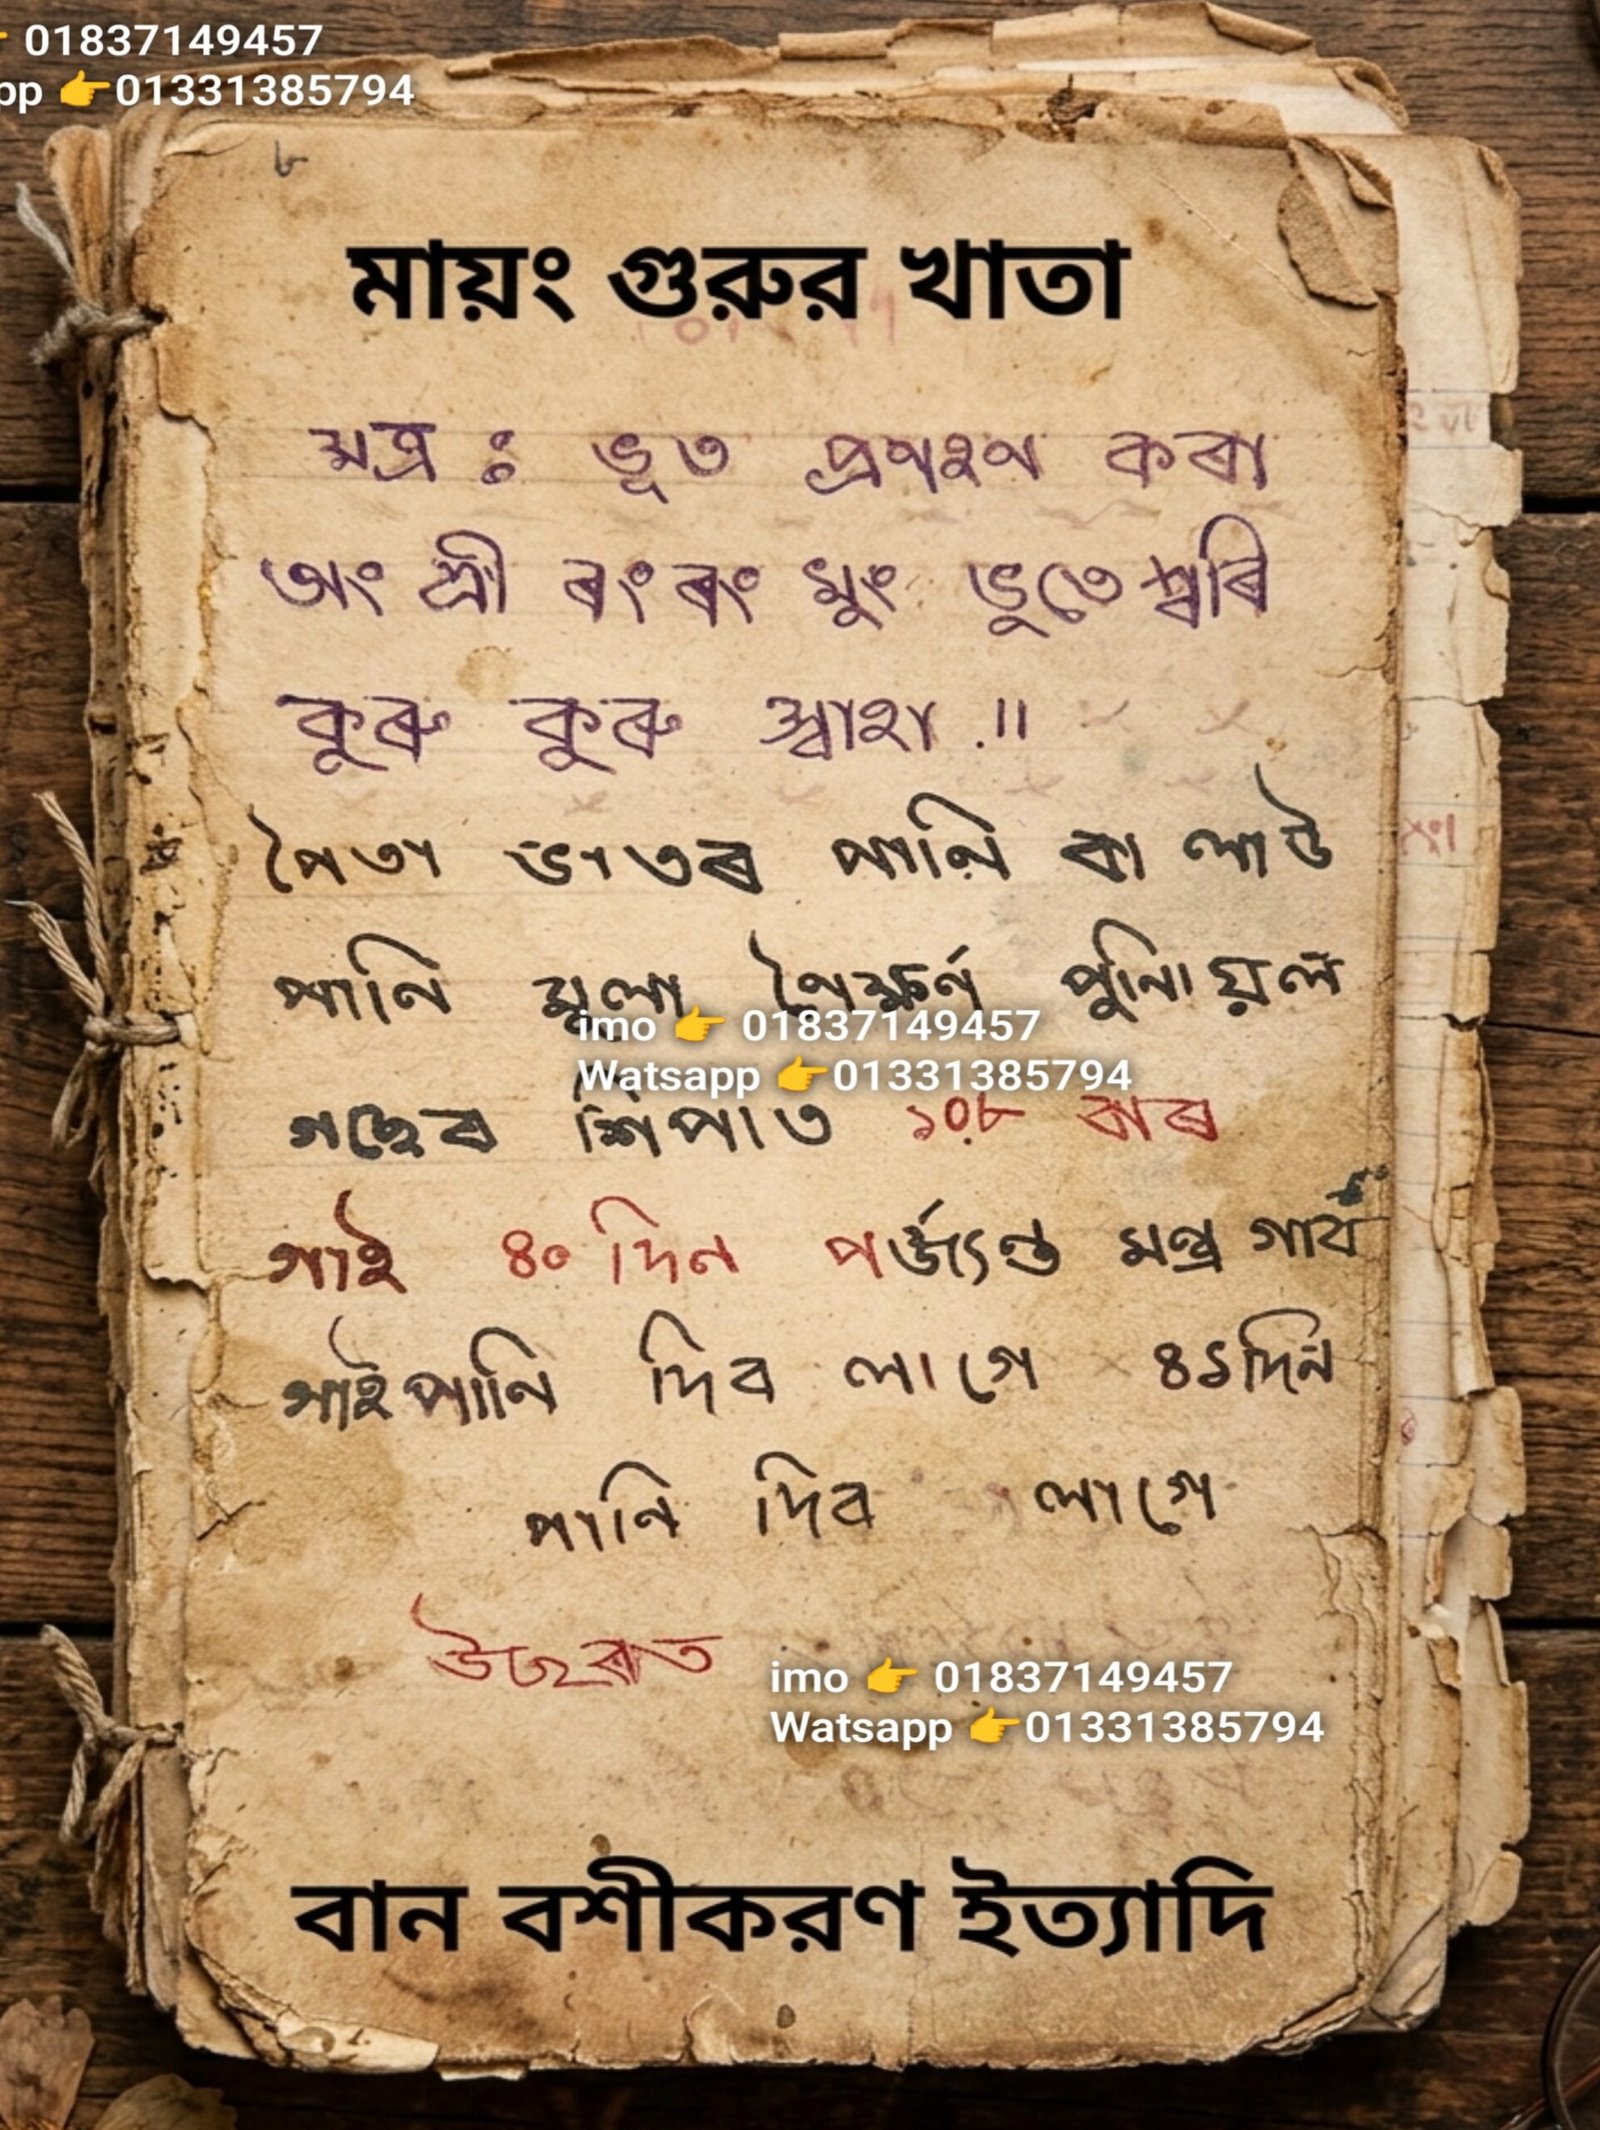 01837149457
pp 👉01331385794
৮
মায়ং গুরুর খাতা
মন্ত্ৰ ঃ ভূত প্ৰসন্ন কৰা
অং শ্ৰী ৰংৰং মুং ভুতেশ্বৰি
কুৰু কুৰু স্বাহা .॥
পৈতা ভাতৰ পানি বা লাউ
পানি মূলা পুনি
imo 👉 01837149457
Watsapp 👉01331385794
গছেৰ শিপাত ১০৮ বাৰ
গাই ৪০ দিন পৰ্জ্যন্ত মন্ত্ৰ গাব
গাই পানি দিব লাগে ৪১দিন
পানি দিব লাগে
উজৰাত
imo 👉 01837149457
Watsapp 👉01331385794
বান বশীকরণ ইত্যাদি